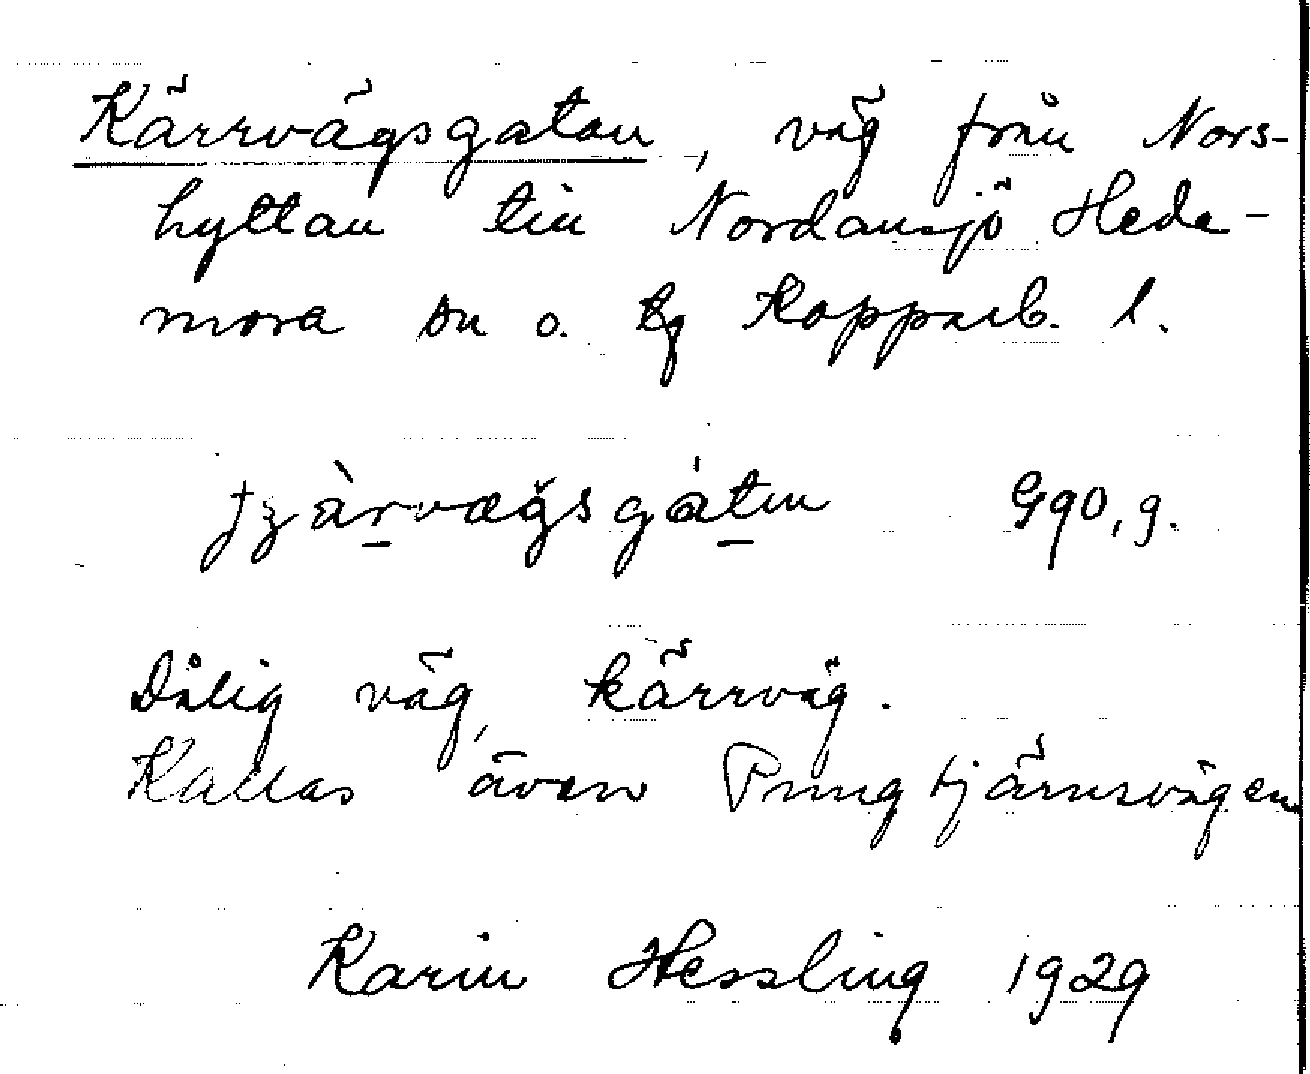 Kärrvägsgatan, väg från Nors-
hyttan till Nordansjö Hede-
mora sn o. tg Kopparb. l.
G90, 9.
Dålig väg, kärrväg.
Kallas även Pungtjärnsvägen
Karin Hessling 1929